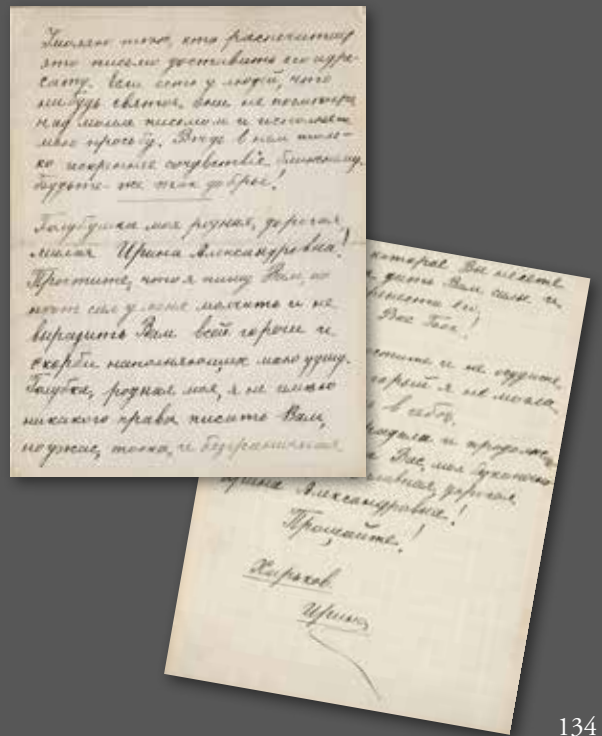 Умоляю того, кто распечатает
это письмо доставить его адре-
сату. Если есть у людей, что
нибудь святое, они не
над моим письмом и исполнят
мою просьбу. Ведь в нем толь-
ко искреннее сочувствіе ближнему.
Будьте же так добры!
Голубушка моя родная, дорогая
милая Ирина Александровна!
Простите, что я пишу Вам, но
нет сил у меня молчать и не
выразить Вам всей горечи и
скорби наполняющих мою душу.
Голубка, родная моя, я не имею
никакого права писать Вам,
но ужас, тоска, и безграничная
которое Вы несете
дать Вам силы и
ренести все!
Вас Бог.
остите и не судите
я не могла
в себе,
радала и продолж
Вас, моя
славная, дорогая
Ирина Александровна!
Прощайте!
Харьков.
Ирина
134